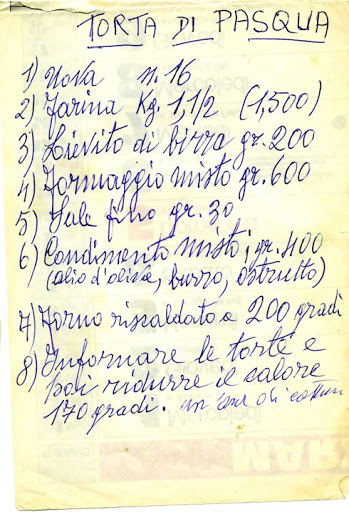 TORTA DI PASQUA
1) Uova n. 16
2) Farina Kg. 1,1/2 (1,500)
3) Lievito di birra gr. 200
4) Formaggio misto gr. 600
5) Sale fino gr. 30
6) Condimento misto; gr. 400
(olio d'oliva, burro, o strutto)
7) Forno riscaldato a 200 gradi
8) Infornare le torte e
poi ridurre il calore
170 gradi. un'ora di cottura
MAR